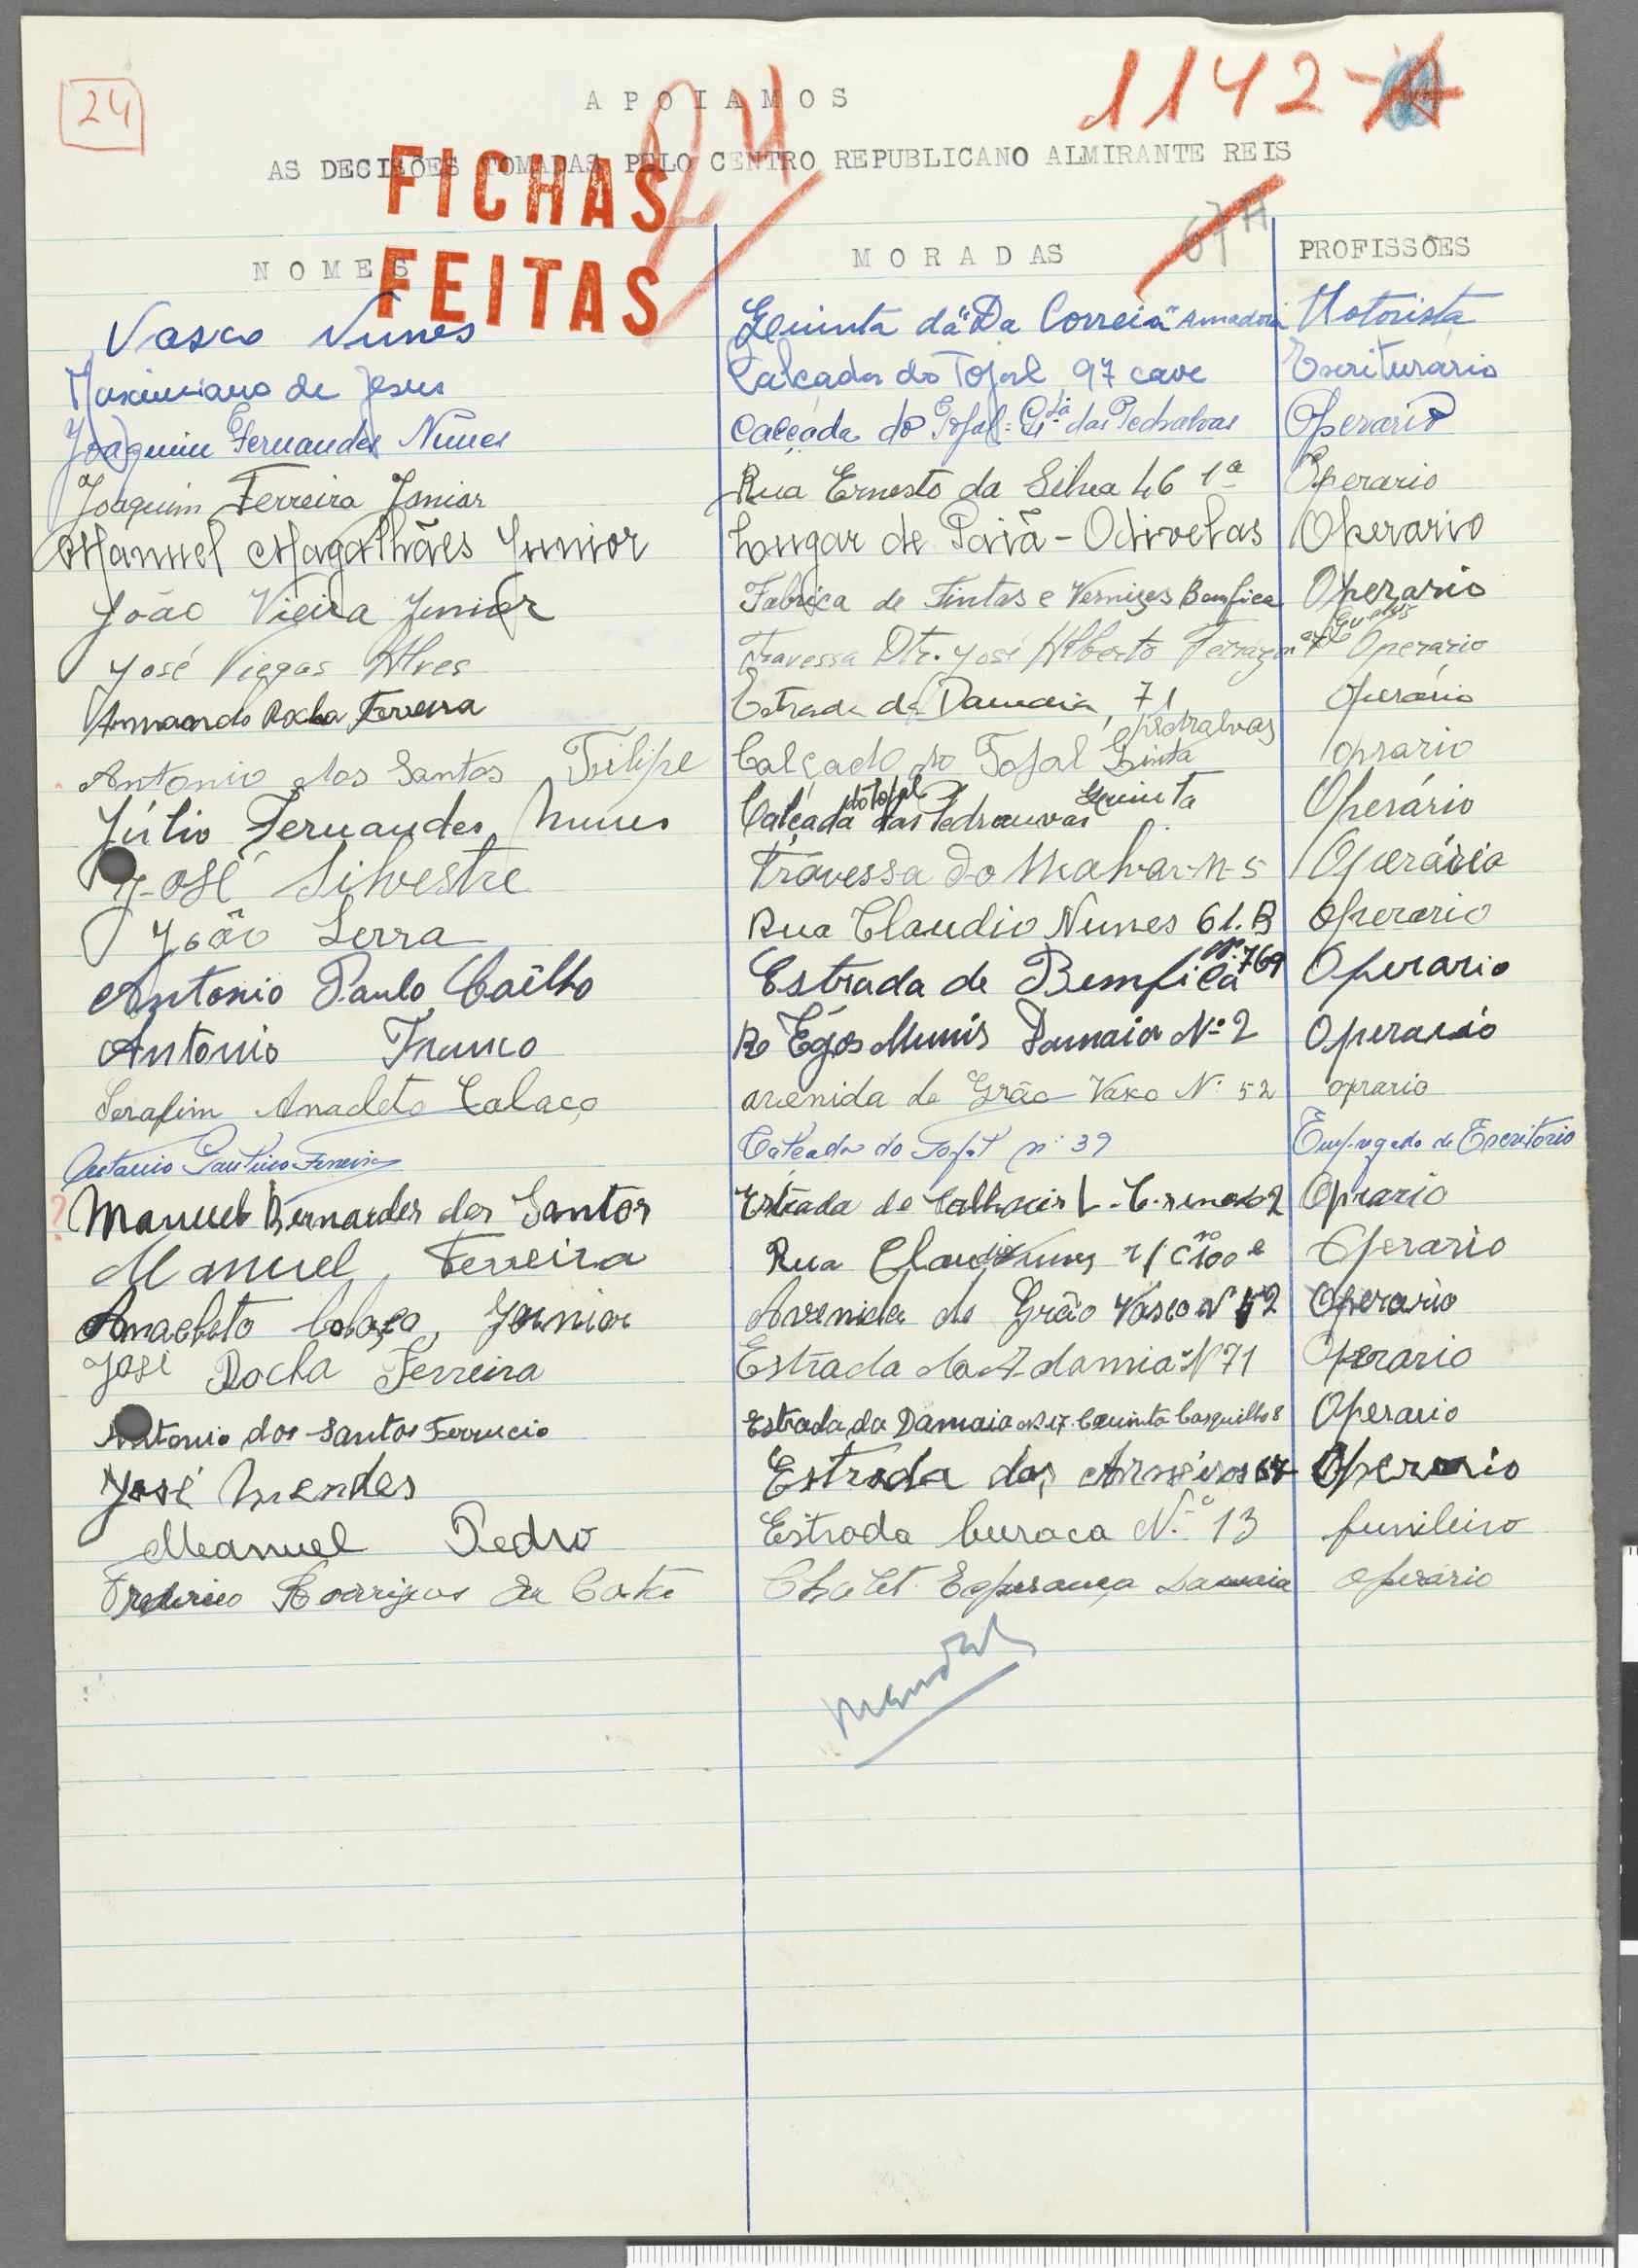 24
1142-A
APOIAMOS
24
AS DECISÕES TOMADAS PELO CENTRO REPUBLICANO ALMIRANTE REIS
FICHAS
FEITAS
67A
NOMES MORADAS PROFISSÕES
Vasco Nunes Quinta da "Da Correia" Amadora Motorista
Maximiano de Jesus Calçada do Tojal 97 cave Escriturário
Joaquim Fernandes Nunes Calçada do Tojal: Qta das Pedralvas Operario
Joaquim Ferreira Junior Rua Ernesto da Silva 46 1º Operario
Manuel Magalhães Junior Lugar de Paiã - Odivelas Operario
João Vieira Junior Fabrica de Tintas e Vernizes Bemfica Operario
José Viegas Alves Travessa Dtr. José Alberto Operario
Armando Rocha Ferreira Estrada da Damaia, 71 Operário
Antonio dos Santos Filipe Calçado do Tojal Quinta pedralvas oprario
Júlio Fernandes Nunes Calçada do tojal das Quinta Operário
José Silvestre Travessa do N-5 Operário
João Serra Rua Claudio Nunes 61.B Operario
Antonio Paulo Coêlho Estrada de Bemfica Nº 769 Operario
Antonio Franco R Egos Munis Damaia Nº 2 Operario
Serafim Anacleto Calaço avenida de Grão Vasco Nº 52 oprario
Antonio Ferreira Calcada do Tojal nº 39 Empregado de Escritorio
? Manuel Bernardes dos Santos Estrada de Calhariz Oprario
Manuel Ferreira Rua Claudio Nunes r/c nº 100 Operario
Anacleto Colaço, Junior Avenida de Grão Vasco Nº 52 Operario
José Rocha Ferreira Estrada da Adamia Nº 71 Operario
Antonio dos Santos Ferrucio Estrada da Damaia Nº 17 Quinta Casquilhos Operario
José Mendes Estrada dos Arneiros 67 Operario
Manuel Pedro Estrada buraca N.º 13 funileiro
Frederico Rodrigues da Costa Chalet Esperança Damaia operário